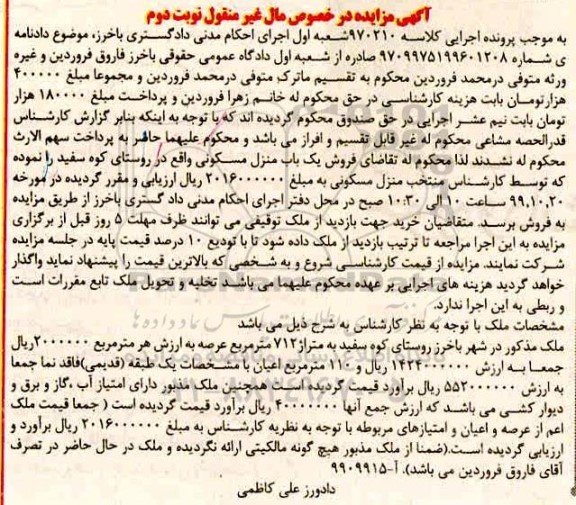 آگهی مزایده در خصوص مال غیر منقول نوبت دوم
به موجب پرونده اجرایی کلاسه ۹۷۰۲۱۰شعبه اول اجرای احکام مدنی دادگستری باخرز، موضوع دادنامه
ی شماره ۹۷۰۹۹۷۵۱۹۹۶۰۱۲۰۸ صادره از شعبه اول دادگاه عمومی حقوقی باخرز فاروق فروردین و غیره
ورثه متوفی درمحمد فروردین محکوم به تقسیم ماترک متوفی درمحمد فروردین و مجموعا مبلغ ۴۰۰۰۰۰
هزارتومان بابت هزینه کارشناسی در حق محکوم له خانم زهرا فروردین و پرداخت مبلغ ۱۸۰۰۰۰ هزار
تومان بابت نیم عشر اجرایی در حق صندوق محکوم گردیده اند که با توجه به اینکه بنابر گزارش کارشناس
قدرالحصه مشاعی محکوم له غیر قابل تقسیم و افراز می باشد و محکوم علیهما حاضر به پرداخت سهم الارث
محکوم له نشدند لذا محکوم له تقاضای فروش یک باب منزل مسکونی واقع در روستای کوه سفید را نموده
که توسط کارشناس منتخب منزل مسکونی به مبلغ ۲۰۱۶۰۰۰۰۰۰ ریال ارزیابی و مقرر گردیده در مورخه
۹۹,۱۰,۲۰ ساعت ۱۰ الی ۱۰:۳۰ صبح در محل دفتر اجرای احکام مدنی داد گستری باخرز از طریق مزایده
به فروش برسد. متقاضیان خرید جهت بازدید از ملک توقیفی می توانند ظرف مهلت ۵ روز قبل از برگزاری
مزایده به این اجرا مراجعه تا ترتیب بازدید از ملک داده شود تا با تودیع ۱۰ درصد قیمت پایه در جلسه مزایده
شرکت نمایند. مزایده از قیمت کارشناسی شروع و به شخصی که بالاترین قیمت را پیشنهاد نماید واگذار
خواهد گردید هزینه های اجرایی بر عهده محکوم علیهما می باشد تخلیه و تحویل ملک تابع مقررات است
و ربطی به این اجرا ندارد.
مشخصات ملک با توجه به نظر کارشناس به شرح ذیل می باشد
ملک مذکور در شهر باخرز روستای کوه سفید به متراژ۷۱۲ مترمربع عرصه به ارزش هر مترمربع ۲۰۰۰۰۰۰ریال
جمعا به ارزش ۱۴۲۴۰۰۰۰۰۰ ریال و ۱۱۰ مترمربع اعیان با مشخصات یک طبقه (قدیمی)فاقد نما جمعا
به ارزش ۵۵۲۰۰۰۰۰۰ ریال برآورد قیمت گردیده است. همچنین ملک مذبور دارای امتیاز آب ،گاز و برق و
دیوار کشی می باشد که ارزش جمع آنها ۴۰۰۰۰۰۰۰ ریال برآورد قیمت گردیده است ( جمعا قیمت ملک
اعم از عرصه و اعیان و امتیازهای مربوطه با توجه به نظریه کارشناس به مبلغ ۲۰۱۶۰۰۰۰۰۰ ریال برآورد و
ارزیابی گردیده است.(ضمنا از ملک مذبور هیچ گونه مالکیتی ارائه نگردیده و ملک در حال حاضر در تصرف
آقای فاروق فروردین می باشد). آ-۹۹۰۹۹۱۵
دادورز علی کاظمی